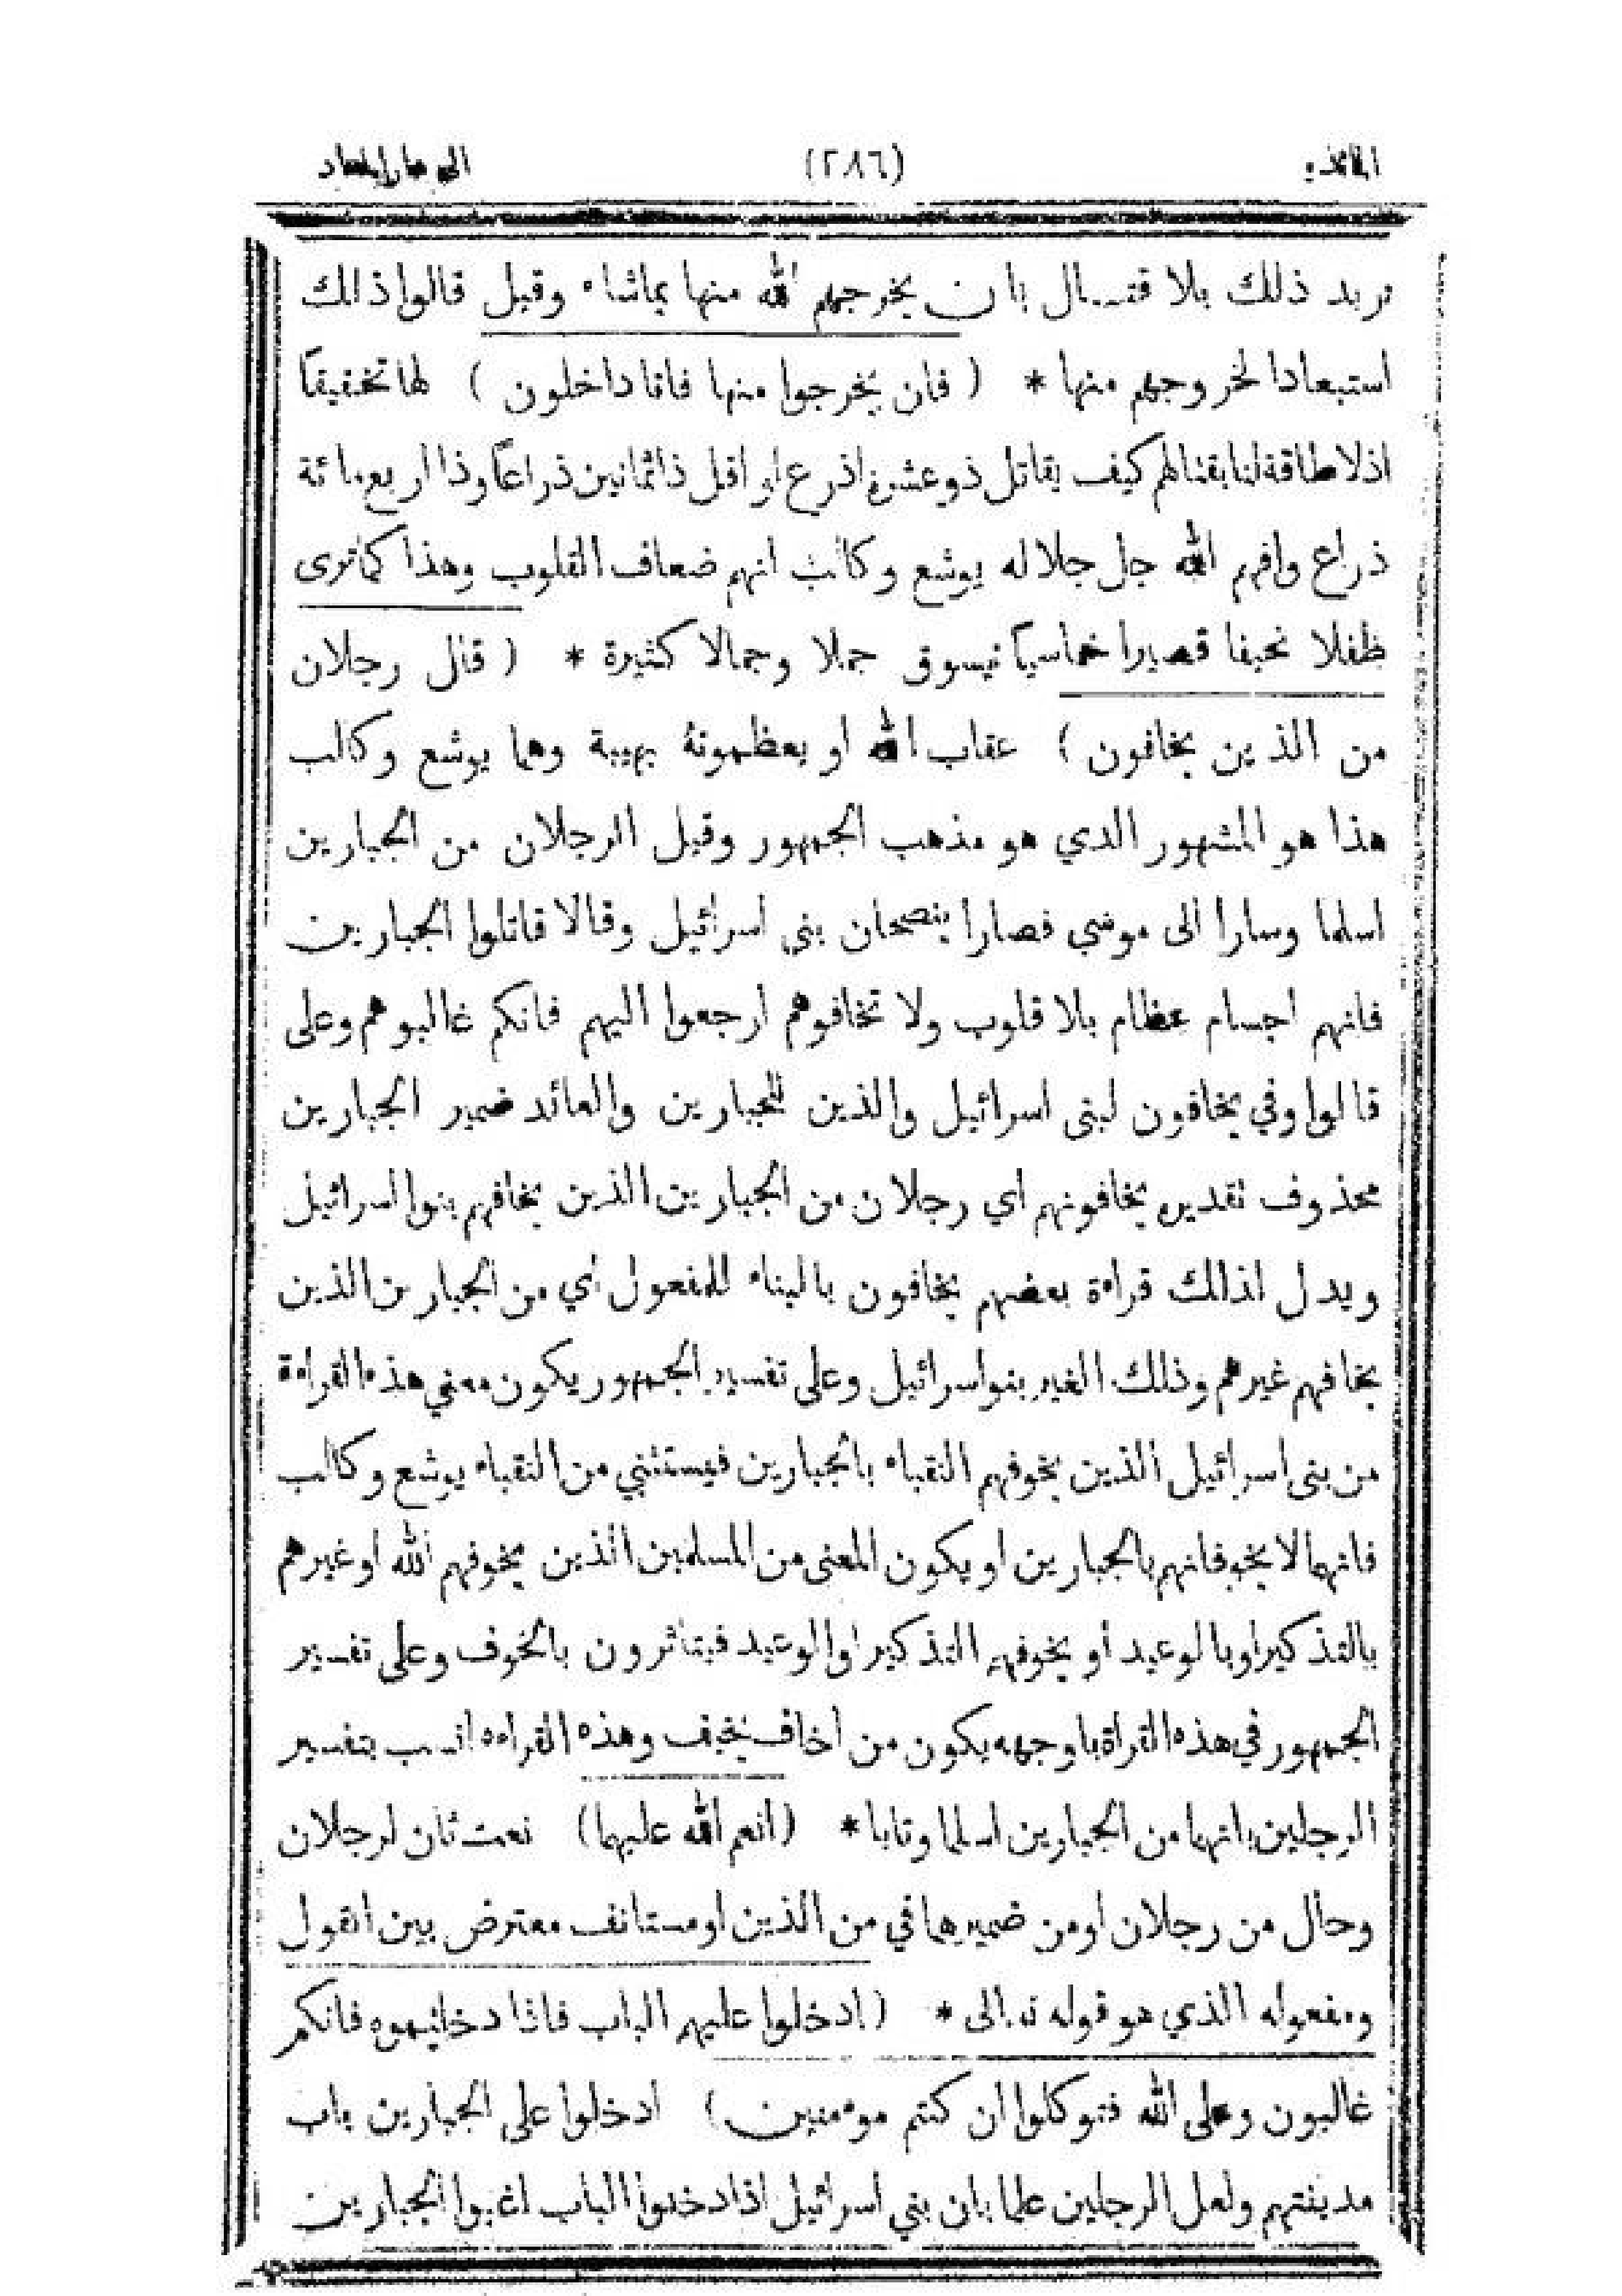 المائدة (٢٨٦) الى دار المعاد
نريد ذلك بلا قتال بان يخرجهم الله منها بماشاء وقيل قالوا ذالك
استبعادا لخروجهم منها * ( فان يخرجوا منها فانا داخلون ) لها تخفيفاً
اذلا طاقة لنا بقتالهم كيف يقاتل ذو عشرة اذرع او اقل ذا ثمانين ذراعاً وذا اربع مائة
ذراع وافهم الله جل جلاله يوشع وكالب انهم ضعاف القلوب وهذا كماترى
طفلا نحيفا قصيرا خماسياً يسوق جملا وجمالا كثيرة * ( قال رجلان
من الذين يخافون ) عقاب الله او يعظمونه بهيبة وهما يوشع وكالب
هذا هو المشهور الدي هو مذهب الجمهور وقيل الرجلان من الجبارين
اسلما وسارا الى موسي فصارا ينصحان بنى اسرائيل وقالا قاتلوا الجبارين
فانهم اجسام عظام بلا قلوب ولا تخافوهم ارجعوا اليهم فانكم غالبوهم وعلى
قالوا وفي يخافون لبنى اسرائيل والذين للجبارين والعائد ضمير الجبارين
محذوف تقديره يخافونهم اي رجلان من الجبارين الذين يخافهم بنوا اسرائيل
ويدل لذالك قراءة بعضهم يخافون بالبناء للمفعول اي من الجبارين الذين
يخافهم غيرهم وذلك الغير بنو اسرائيل وعلى تفسير الجمهور يكون معني هذه القراءة
من بنى اسرائيل الذين يخوفهم النقباء بالجبارين فيستثني من النقباء يوشع وكالب
فانهما لا يخوفانهم بالجبارين او يكون المعنى من المسلمين الذين يخوفهم الله او غيرهم
بالتذكير او بالوعيد أو يخوفهم التذكير او الوعيد فيتأثرون بالخوف وعلى تفسير
الجمهور في هذه القراة باوجهه يكون من اخاف يخيف وهذه القراءه انسب بتفسير
الرجلين بانهما من الجبارين اسلما وتابا * (انعم الله عليهما) نعت ثان لرجلان
وحال من رجلان او من ضميرهما في من الذين او مستانف معترض بين القول
ومفعوله الذي هو قوله تعالى * ( ادخلوا عليهم الباب فاذا دخلتموه فانكم
غالبون وعلى الله فتوكلوا ان كنتم موءمنين ) ادخلوا على الجبارين باب
مدينتهم ولعل الرجلين علما بان بني اسرائيل اذا دخلوا الباب الجبارين